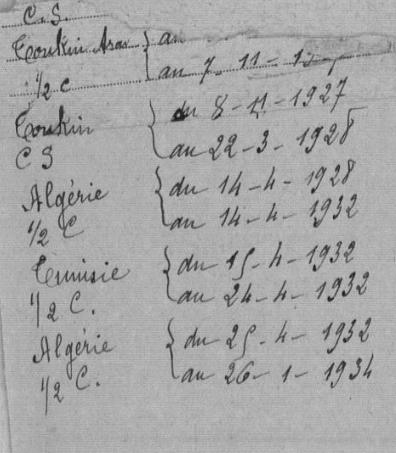 C.S.
Tonkin
1/2 C
au 7 - 11 - 
Tonkin
C S
du 8 - 11 - 1927
au 22 - 3 - 1928
Algérie
1/2 C
du 14 - 4 - 1928
au 14 - 4 - 1932
Tunisie
1/2 C.
du 15 - 4 - 1932
au 24 - 4 - 1932
Algérie
1/2 C.
du 25 - 4 - 1932
au 26 - 1 - 1934